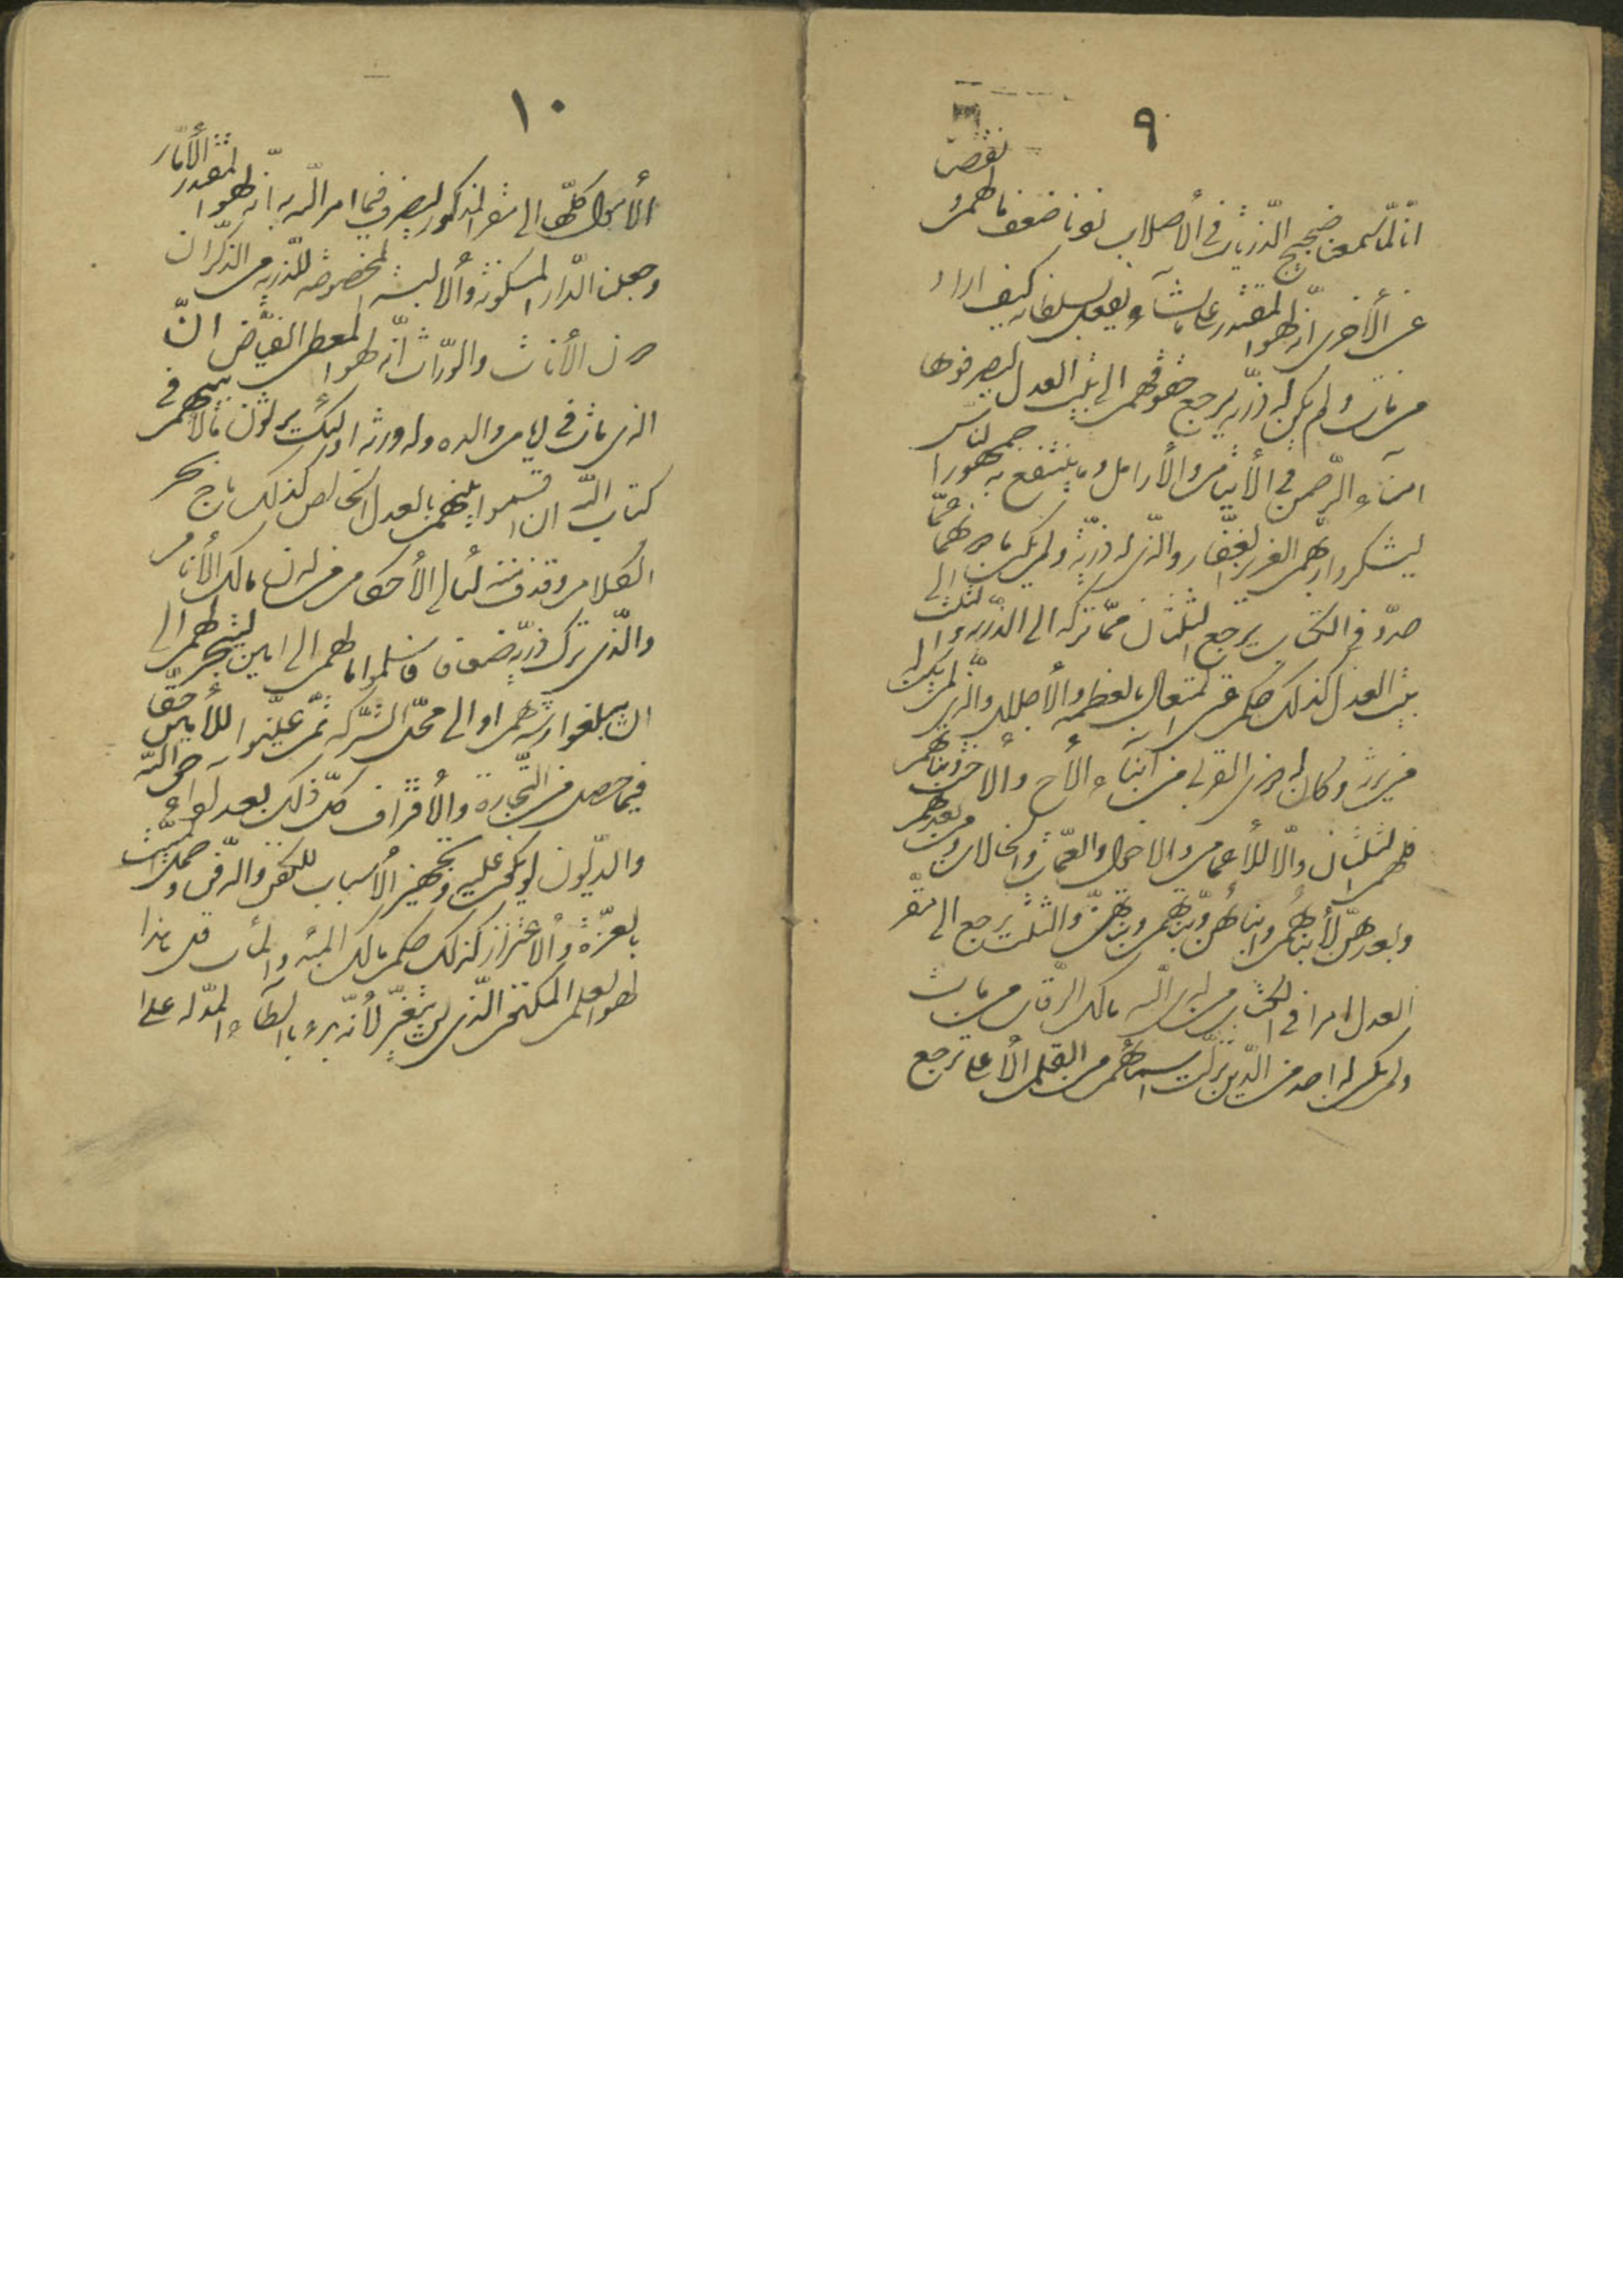 ٩
انّا لمّا سمعنا ضجيج الذّرّيات فى الأصلاب زدنا ضعف ما لهم و نقصنا
عن الأخرى انّه لهو المقتدر على ما يشآء يفعل بسلطانه كيف اراد
من مات و لم يكن له ذرّيّة ترجع حقوقهم الى بيت العدل ليصرفوها
امنآء الرّحمن فى الأيتام و الأرامل و ما ينتفع به جمهور النّاس
ليشكروا ربّهم العزيز الغفّار و الّذى له ذرّيّة و لم يكن ما دونها عمّا
حدّد فى الكتاب يرجع الثّلثان ممّا تركه الى الذّرّيّة و الثّلث الى
بيت العدل كذلك حكم الغنى المتعال بالعظمة و الأجلال و الّذى لم يكن له
من يرثه و كان له ذو القربى من ابنآء الأخ و الأخت و بناتهما
فلهم الثّلثان و الّا للأعمام و الأخوال و العمّات و الخالات و من بعدهم
و بعدهنّ لأبنائهم و ابنائهنّ و بناتهم و بناتهنّ و الثّلث يرجع الى مقرّ
العدل امرا فى الكتاب من لدى اللّه مالك الرّقاب من مات
و لم يكن له احد من الّذين نزّلت اسمائهم من القلم الأعلى ترجع
١٠
الأموال كلّها الى المقرّ المذكور لتصرف فيما امر اللّه به انّه لهو المقتدر الأمّار
و جعلنا الدّار المسكونة و الألبسة المخصوصة للذّرّيّة من الذّكران
دون الأناث و الورّاث انّه لهو المعطى الفيّاض انّ
الّذى مات فى ايّام والده و له ذرّيّة اولئك يرثون ما لأبيهم فى
كتاب اللّه ان اقسموا بينهم بالعدل الخالص كذلك ماج بحر
الكلام و قذف لئالئ الأحكام من لدن مالك الأنام
و الّذى ترك ذرّيّة ضعافا فاسلموا ما لهم الى امين ليتّجر لهم الى
ان يبلغوا رشدهم او الى محلّ الشّركة ثمّ عيّنوا للأمين حقّا
فيما حصل من التّجارة و الأقتراف كلّ ذلك بعد ادآء حقّ اللّه
و الدّيون لو تكون عليه و تجهيز الأسباب للكفن و الدّفن و حمل الميّت
بالعزّة و الأعتزاز كذلك حكم مالك المبدء و المآب قل هذا
لهو العلم المكنون الّذى لن يتغيّر لأنّه بدء بالطّآء المدلّة على